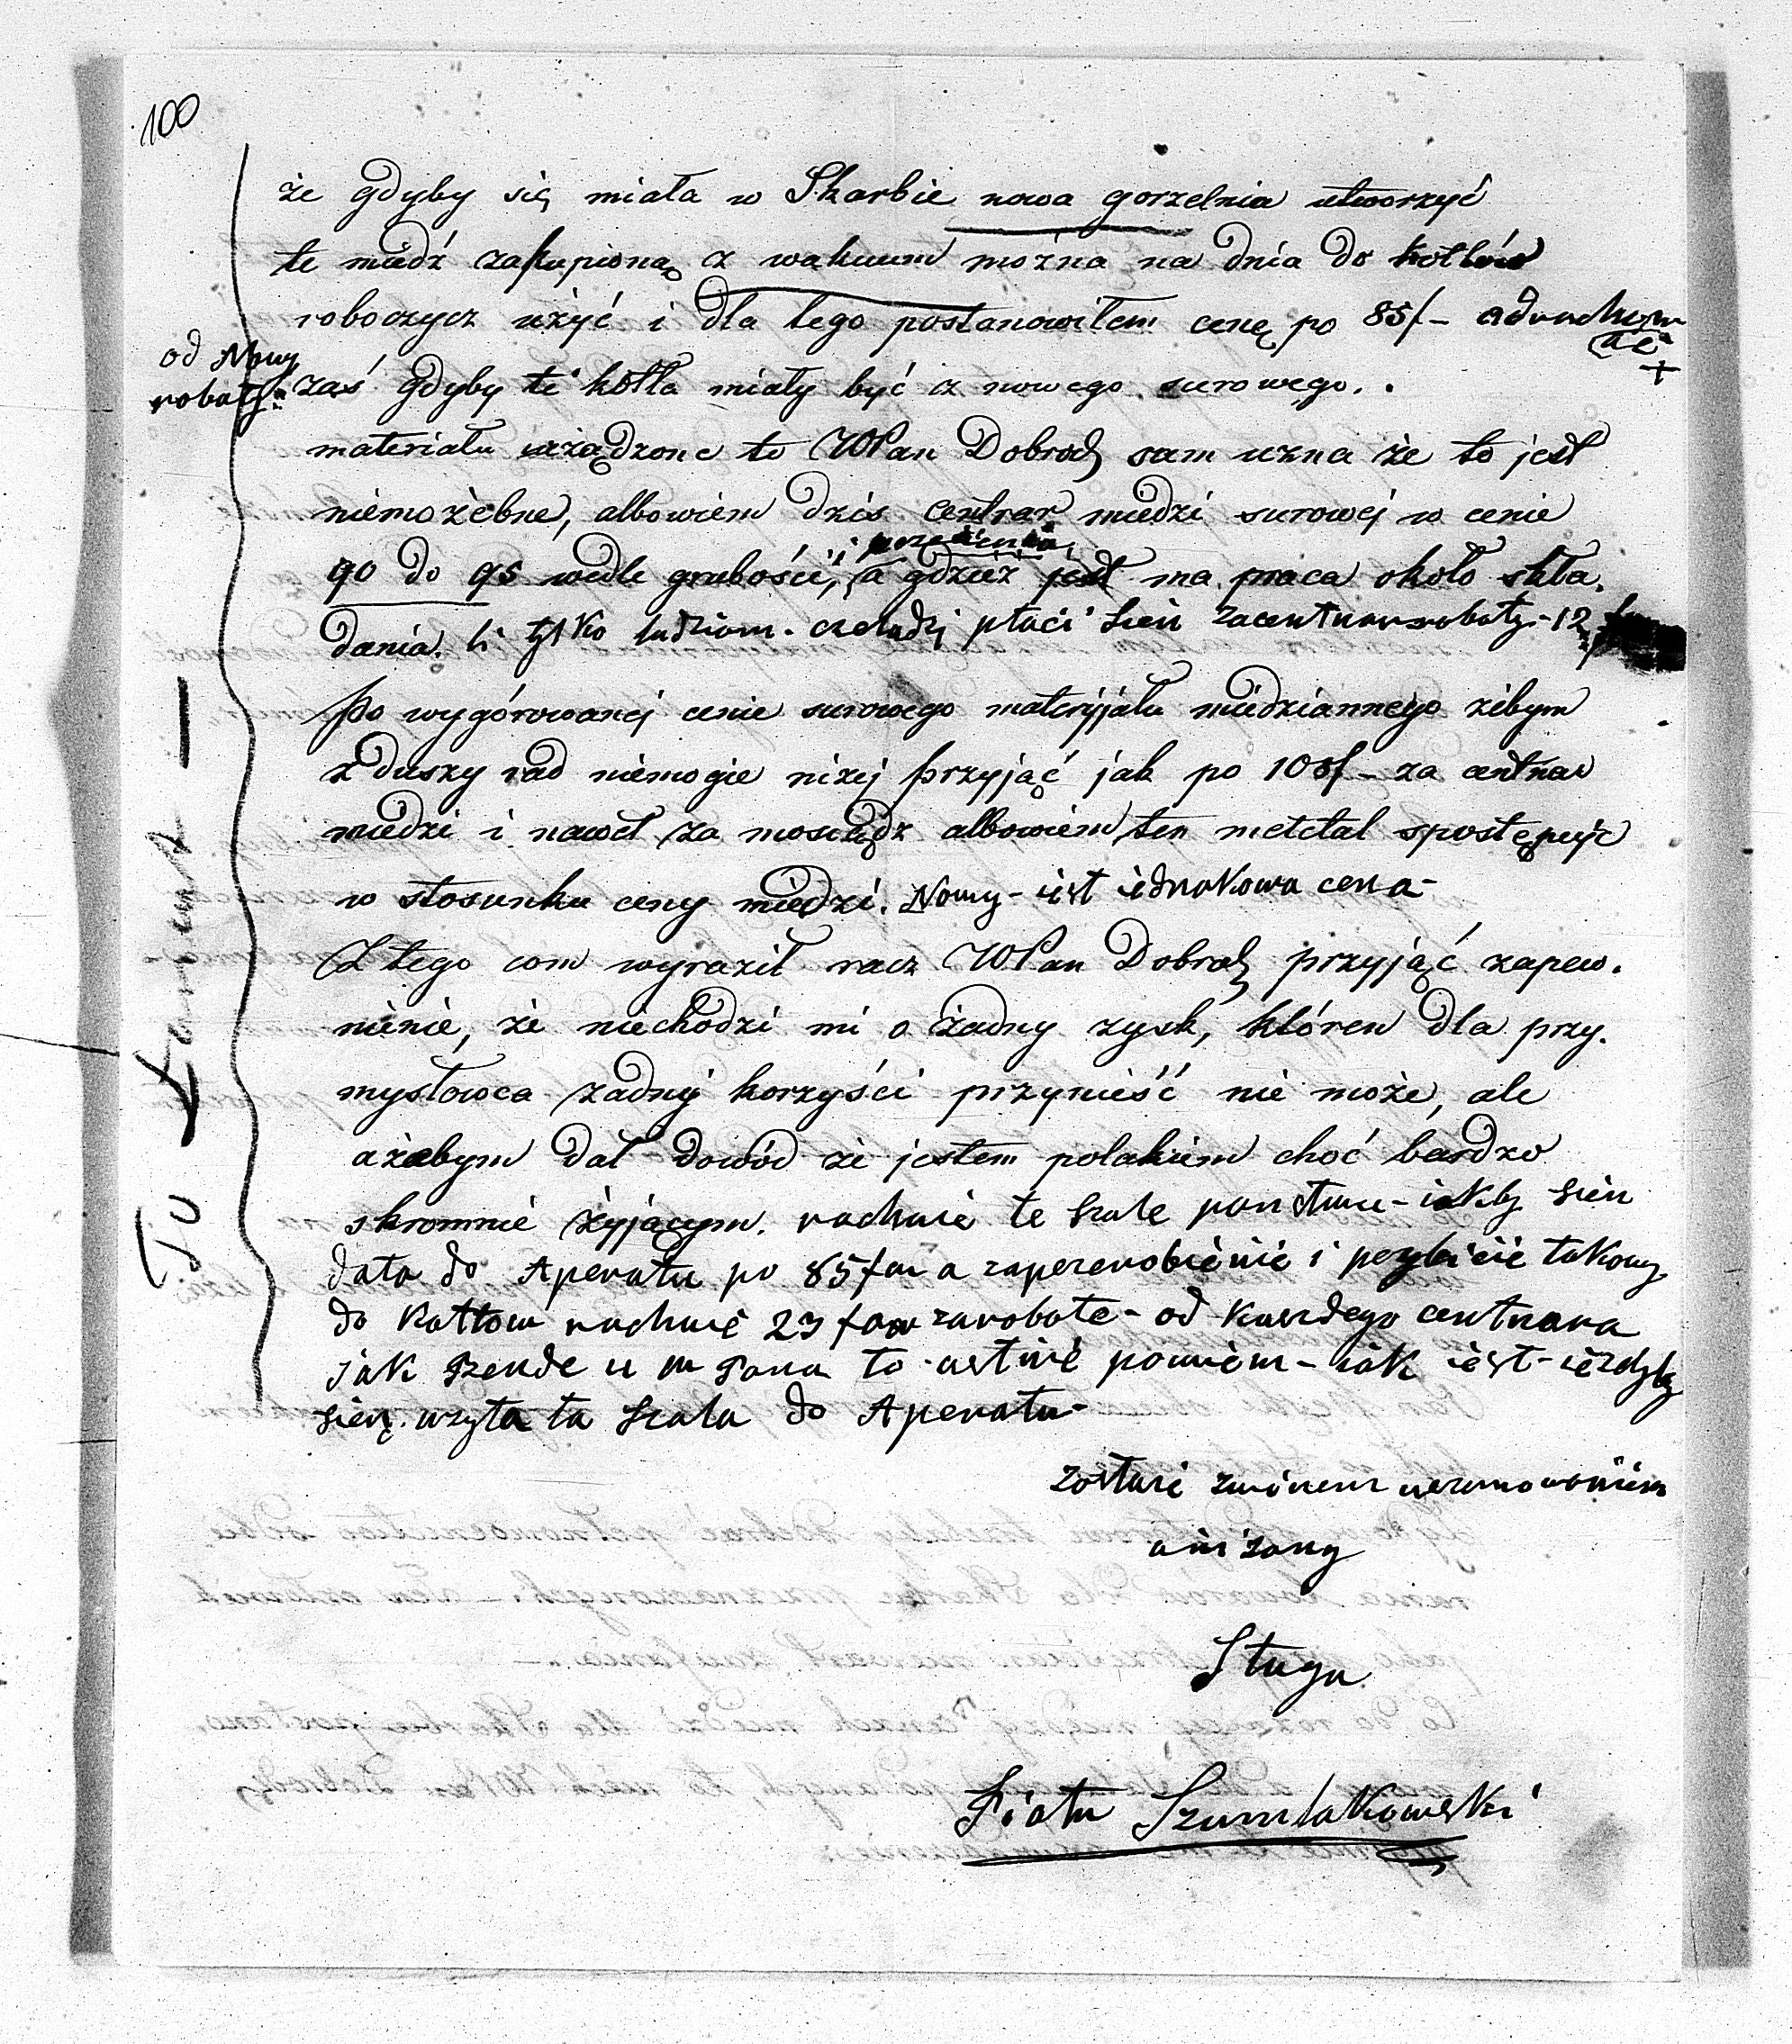 100
że gdyby się miała w Skarbie nowa gorzelnia utworzyć
te miedź zakupioną z wakuum można na dnia do kotłów
roboczycz użyć i dla tego postanowiłem cenę po 85f–
od Nowy
roboty
zaś gdyby te kotła miały być z nowego surowego.
materiału urządzone to WPan Dobrodz sam uzna że to jest
niemożebne, albowiem dziś centnar miedzi surowéj w cenie
90 do 95 wedle grubości, a gdzież jest ma praca około skła.
dania. li tylko ludziom. czeladzi płaci sień zacentnar roboty - 12
Po wygórowanej cenie surowego materyjału miedziannego żebym
z duszy rad niemogie niżej przyjąć jak po 108f– za centnar
miedzi i nawet za mosiądz albowiem ten metetal spostępuje
w stosunku ceny miedzi. Nowy - iest iednakowa cena -
Z tego com wyraził racz WPan Dobrodz przyjąć zapew.
nienie, że niechodzi mi o żadny zysk, któren dla przy.
mysłowca żadny korzyści przynieść nie może, ale
ażebym dał dowód że jestem polakiem choć bardzo
skromnie żyjącym. rachuie te szale panstwu - iakby sień
dała do Aperatu po 85 fun a zaperzerobienie i pezybicie takowy
do Kotłow rachuie 23 zarobote - od Kaerdego centnara
jak bende u m Pana to ustnie powiem - iak iest - ieżdyby
sieną użyta ta szala do Aperatu -
zostaie zwinem uszanowaniem
uniżony
Sługa
Piotr Szumlakowski
To